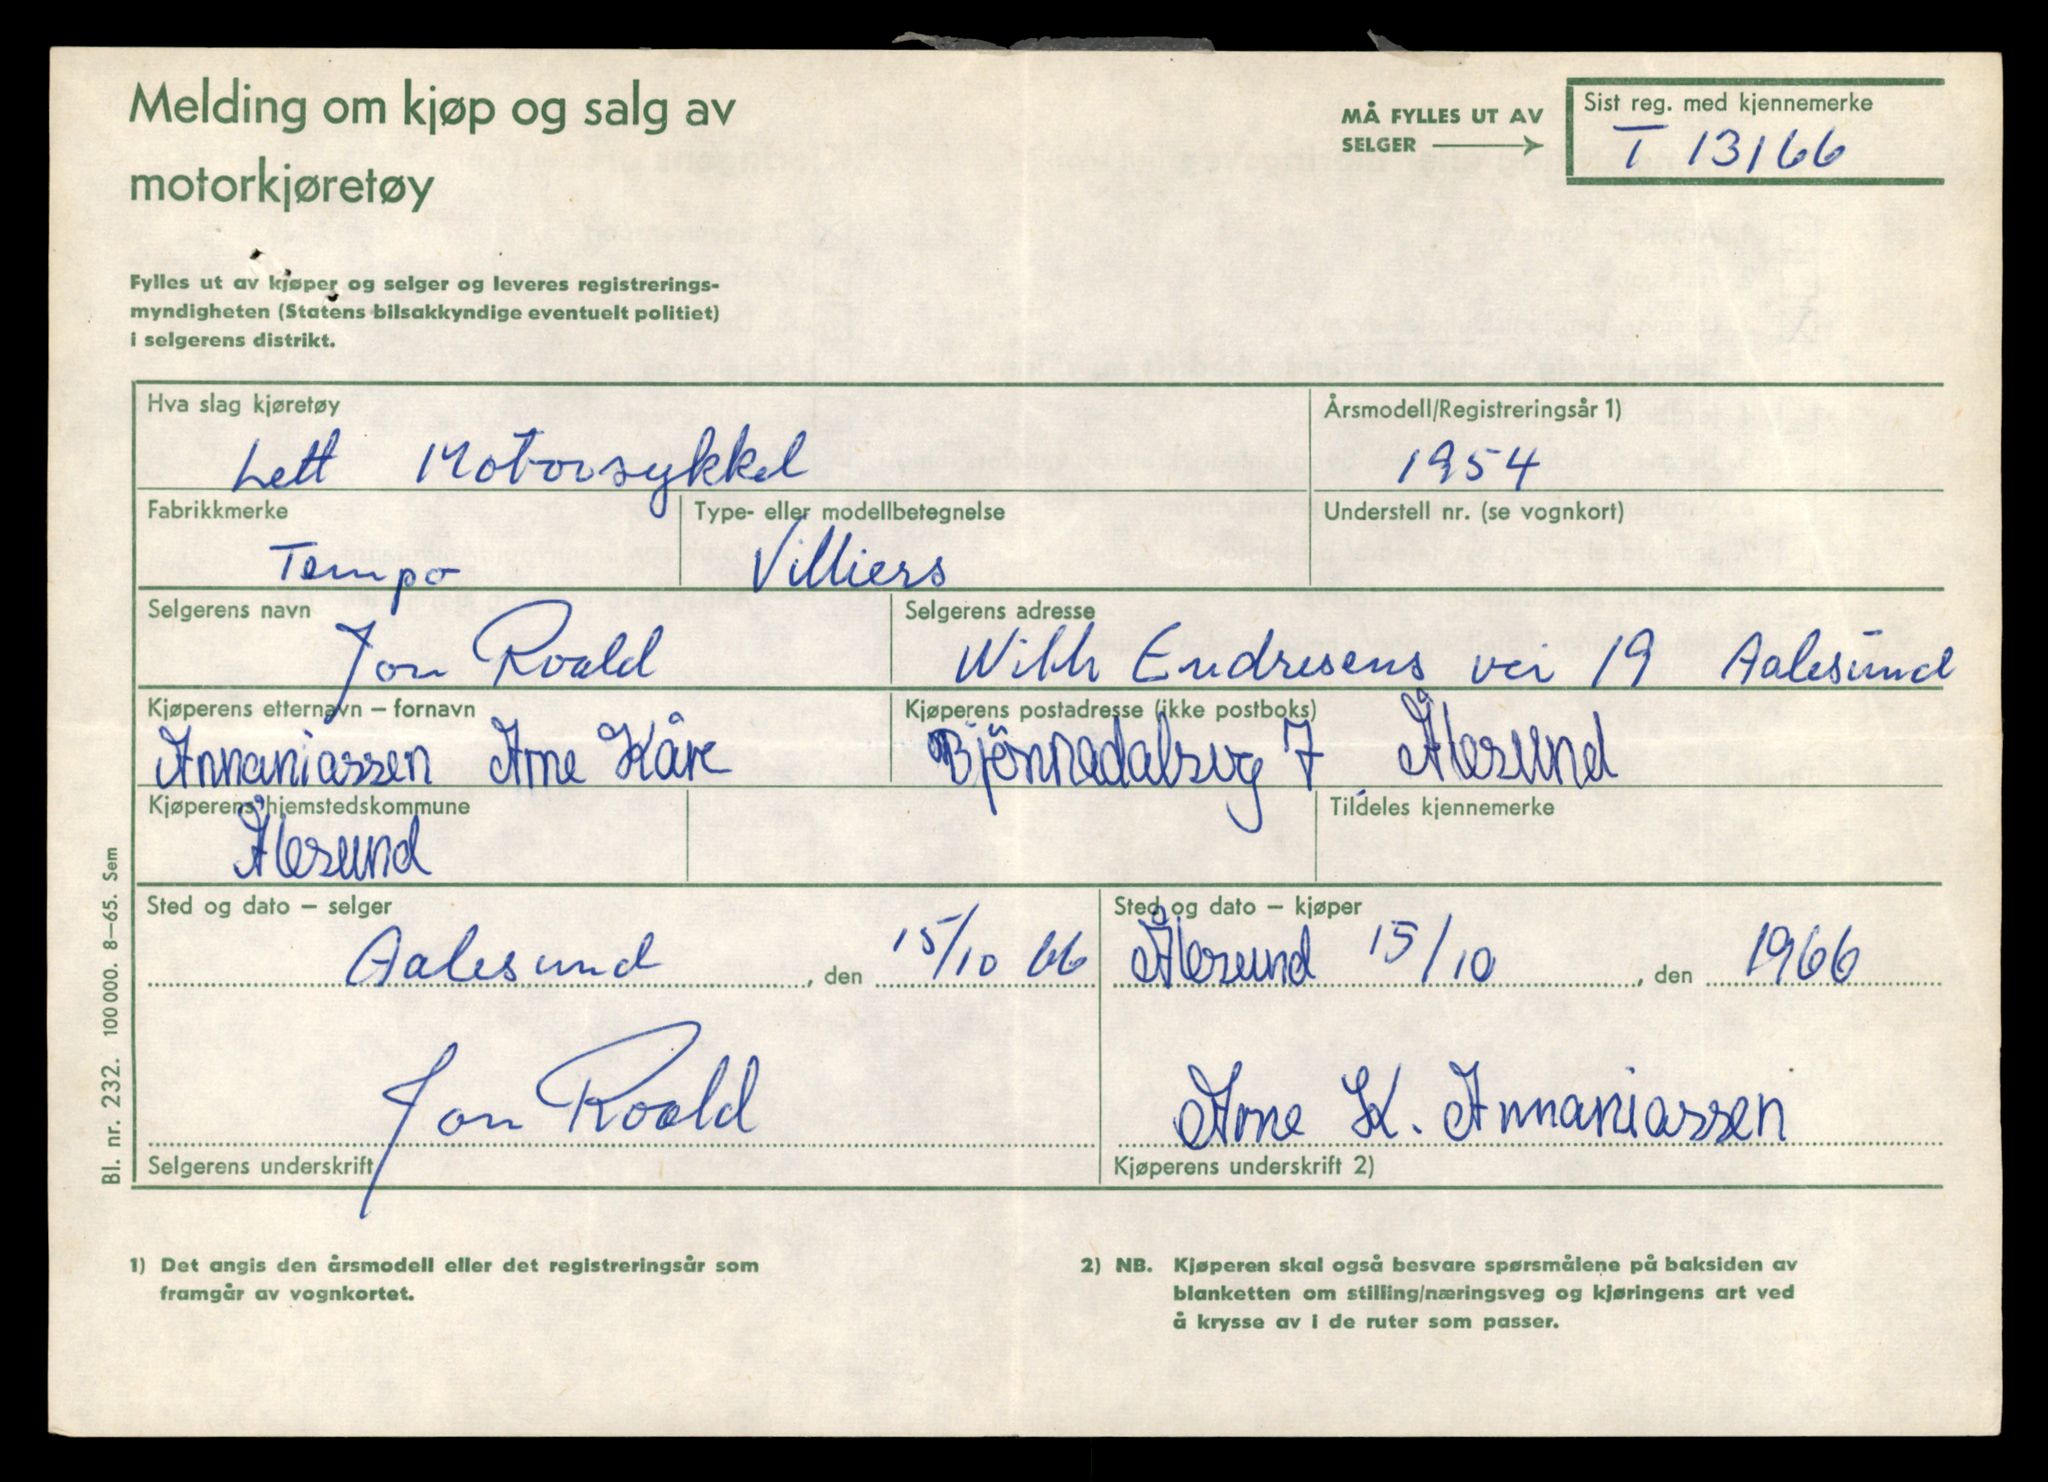 Melding om kjøp og salg av
motorkjøretøy
MÅ FYLLES UT AV
SELGER
Sist reg. med kjennemerke
T 13166
Fylles ut av kjøper og selger og leveres registrerings-
myndigheten (Statens bilsakkyndige eventuelt politiet)
i selgerens distrikt.
Hva slag kjøretøy
Årsmodell/Registreringsår 1)
Lett Motorsykkel
1954
Fabrikkmerke
Type- eller modellbetegnelse
Understell nr. (se vognkort)
Tempo
Villiers
Selgerens navn
Selgerens adresse
Jon Roald
Wilh Endresens vei 19 Aalesund
Kjøperens etternavn – fornavn
Kjøperens postadresse (ikke postboks)
Annaniassen Arne Kåre
Björnnadalsvg 7 Ålesund
Kjøperens hjemstedskommune
Tildeles kjennemerke
Ålesund
Sted og dato – selger
Sted og dato – kjøper
Aalesund , den 15/10 66
Ålesund 15/10 , den 1966
Jon Roald
Arne K. Annaniassen
Selgerens underskrift
Kjøperens underskrift 2)
Bl. nr. 232. 100 000. 8–65. Sem
1) Det angis den årsmodell eller det registreringsår som
framgår av vognkortet.
2) NB. Kjøperen skal også besvare spørsmålene på baksiden av
blanketten om stilling/næringsveg og kjøringens art ved
å krysse av i de ruter som passer.